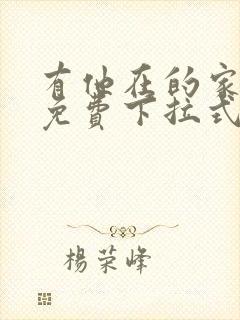 有他在的家
免費下拉式
楊荣峰